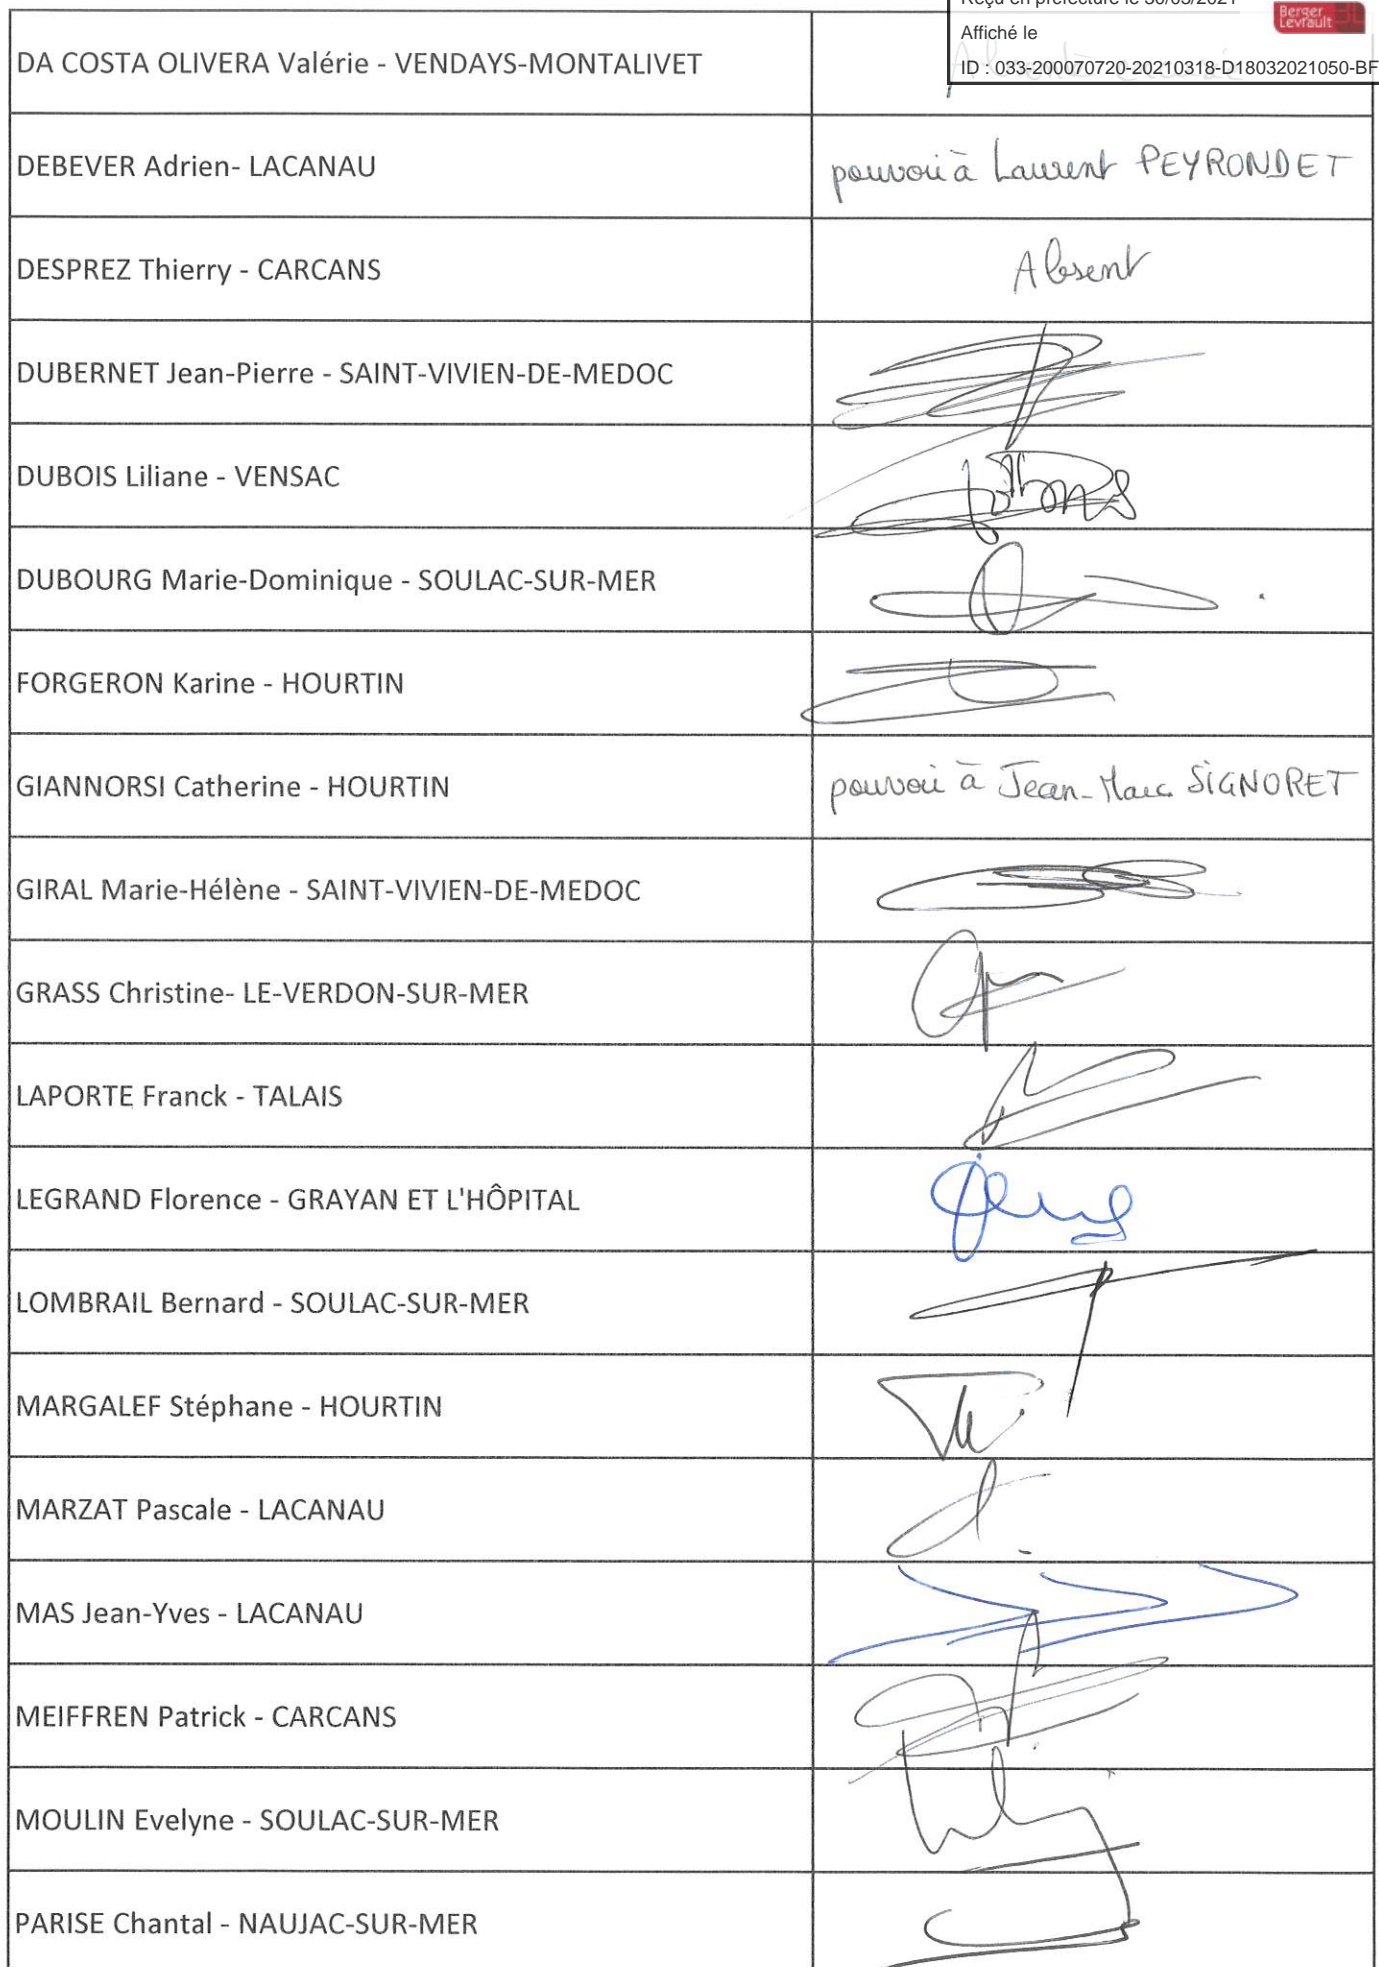 Reçu en préfecture le 30/03/2021
Berger
Levrault
Affiché le
ID : 033-200070720-20210318-D18032021050-BF
DA COSTA OLIVERA Valérie - VENDAYS-MONTALIVET
DEBEVER Adrien- LACANAU pouvoir à Laurent PEYRONDET
DESPREZ Thierry - CARCANS Absent
DUBERNET Jean-Pierre - SAINT-VIVIEN-DE-MEDOC
DUBOIS Liliane - VENSAC
DUBOURG Marie-Dominique - SOULAC-SUR-MER
FORGERON Karine - HOURTIN
GIANNORSI Catherine - HOURTIN pouvoir à Jean-Marc SIGNORET
GIRAL Marie-Hélène - SAINT-VIVIEN-DE-MEDOC
GRASS Christine- LE-VERDON-SUR-MER
LAPORTE Franck - TALAIS
LEGRAND Florence - GRAYAN ET L'HÔPITAL
LOMBRAIL Bernard - SOULAC-SUR-MER
MARGALEF Stéphane - HOURTIN
MARZAT Pascale - LACANAU
MAS Jean-Yves - LACANAU
MEIFFREN Patrick - CARCANS
MOULIN Evelyne - SOULAC-SUR-MER
PARISE Chantal - NAUJAC-SUR-MER